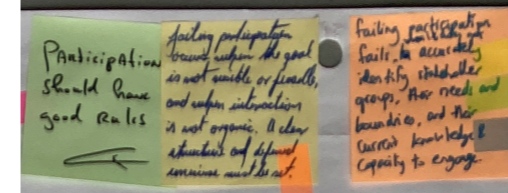 Participation
should have
good Rules
failing participation
occurs when the goal
is not visible or feasible,
and when interaction
is not organic. A clear
structure and defined
must be set.
failing participation
fails to accurately
identify stakeholder
groups, their needs and
boundries, and their
current knowledge &
capacity to engage.